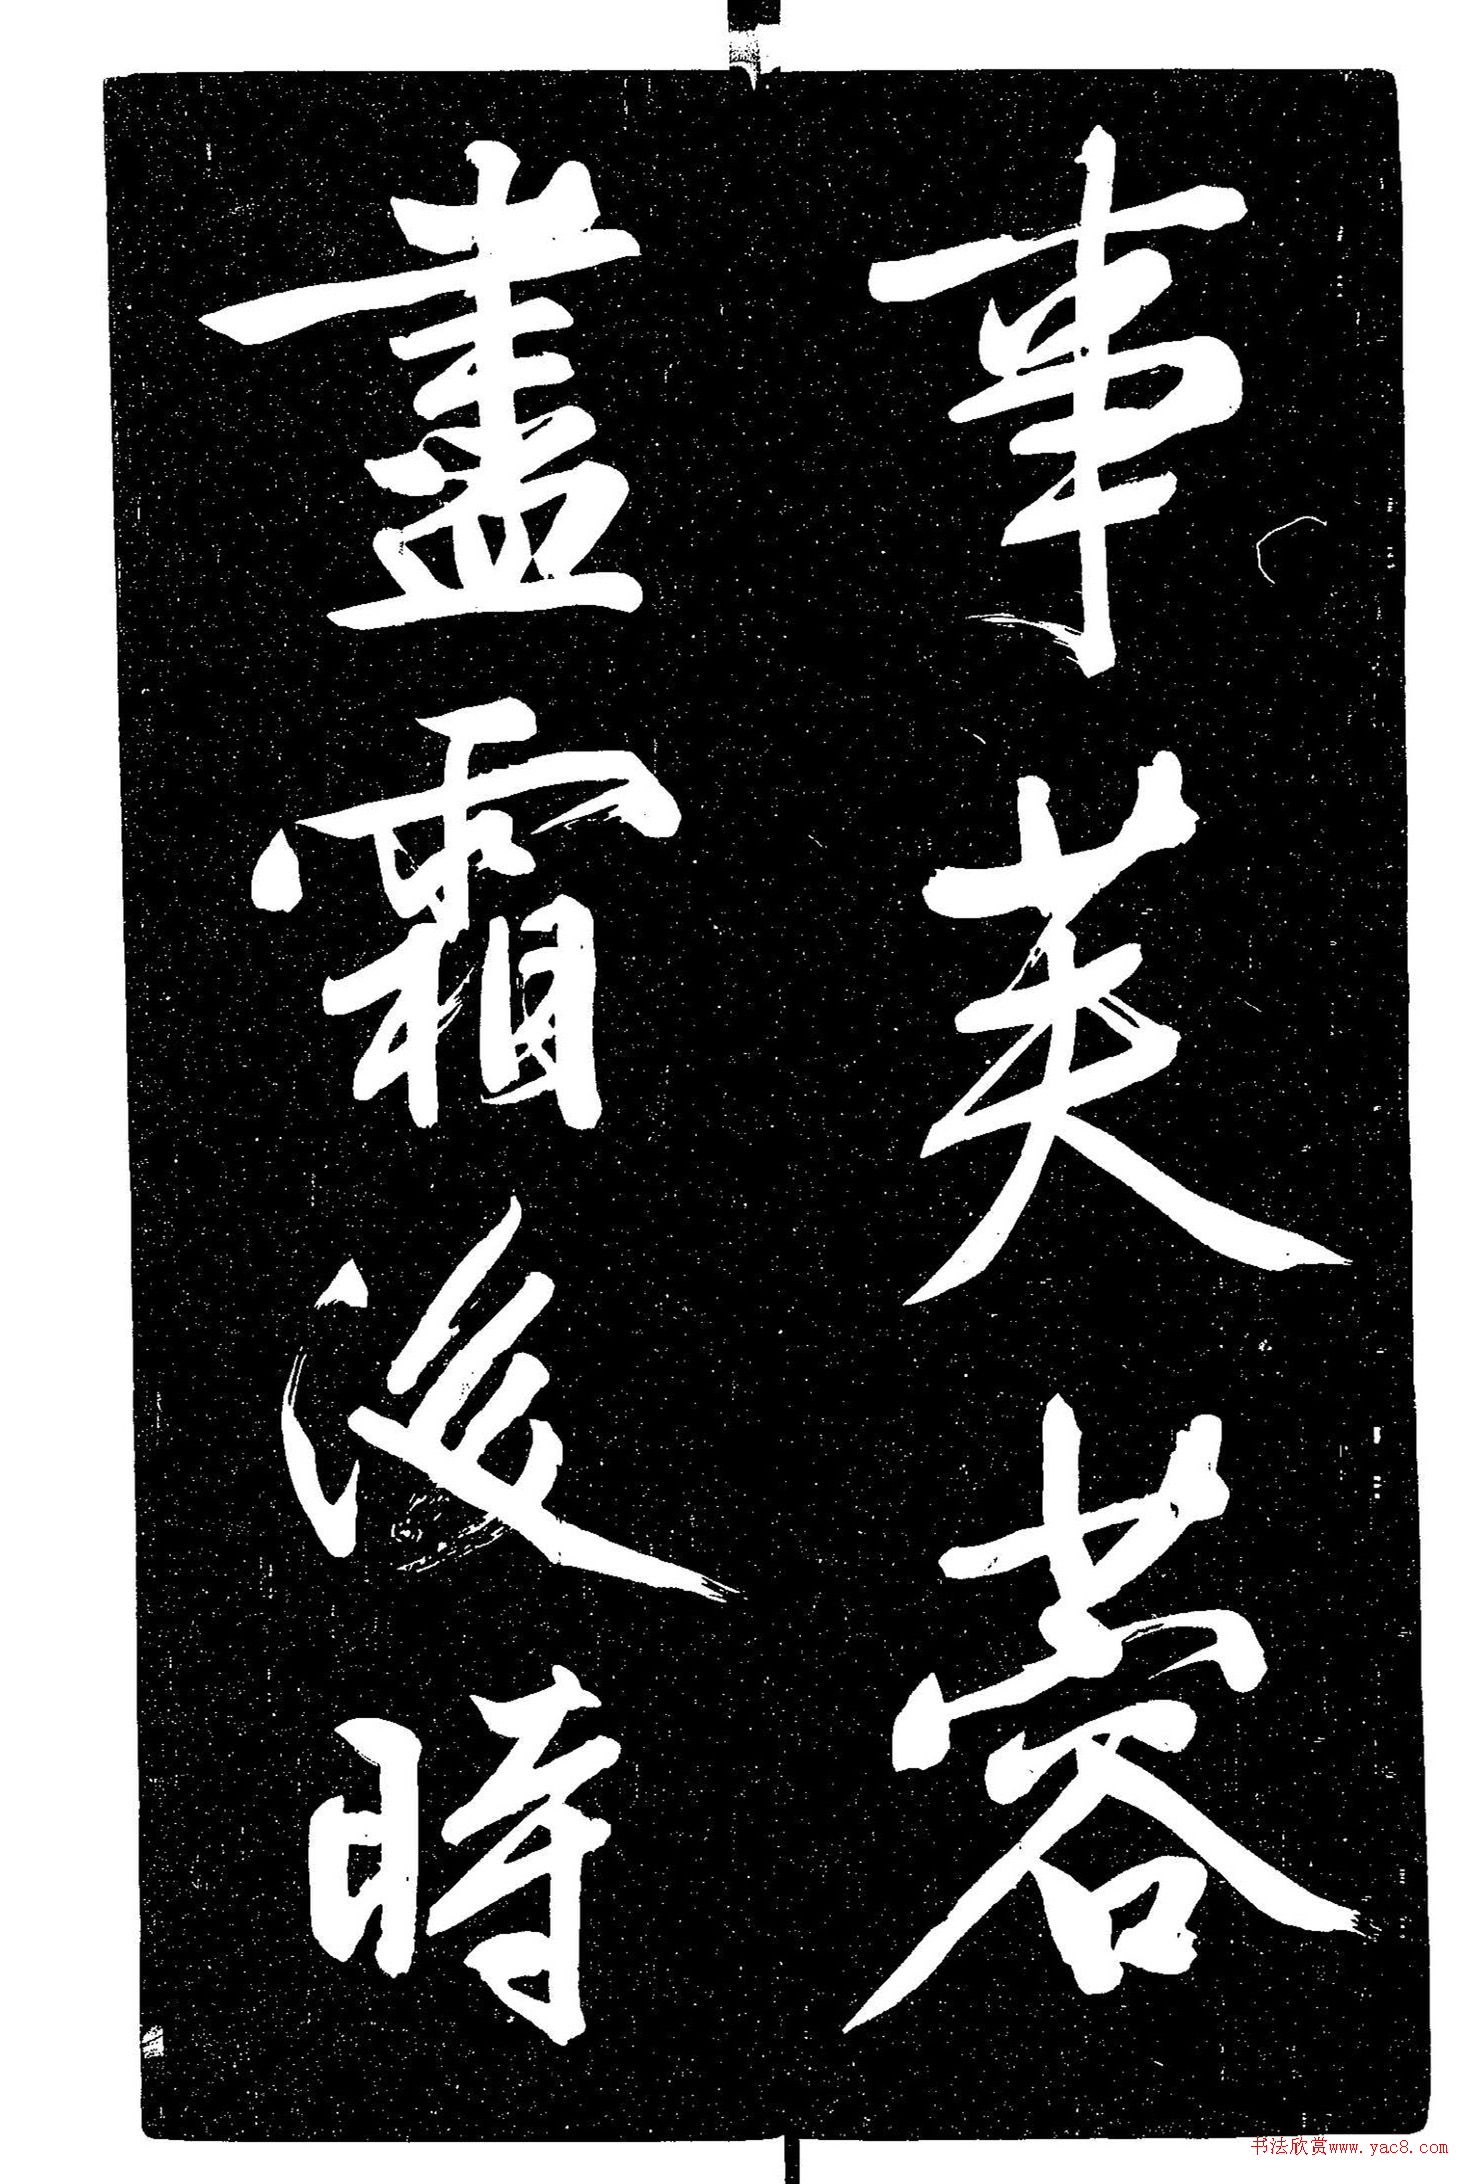 事芙蓉
盡霜後時
书法欣赏www.yac8.com